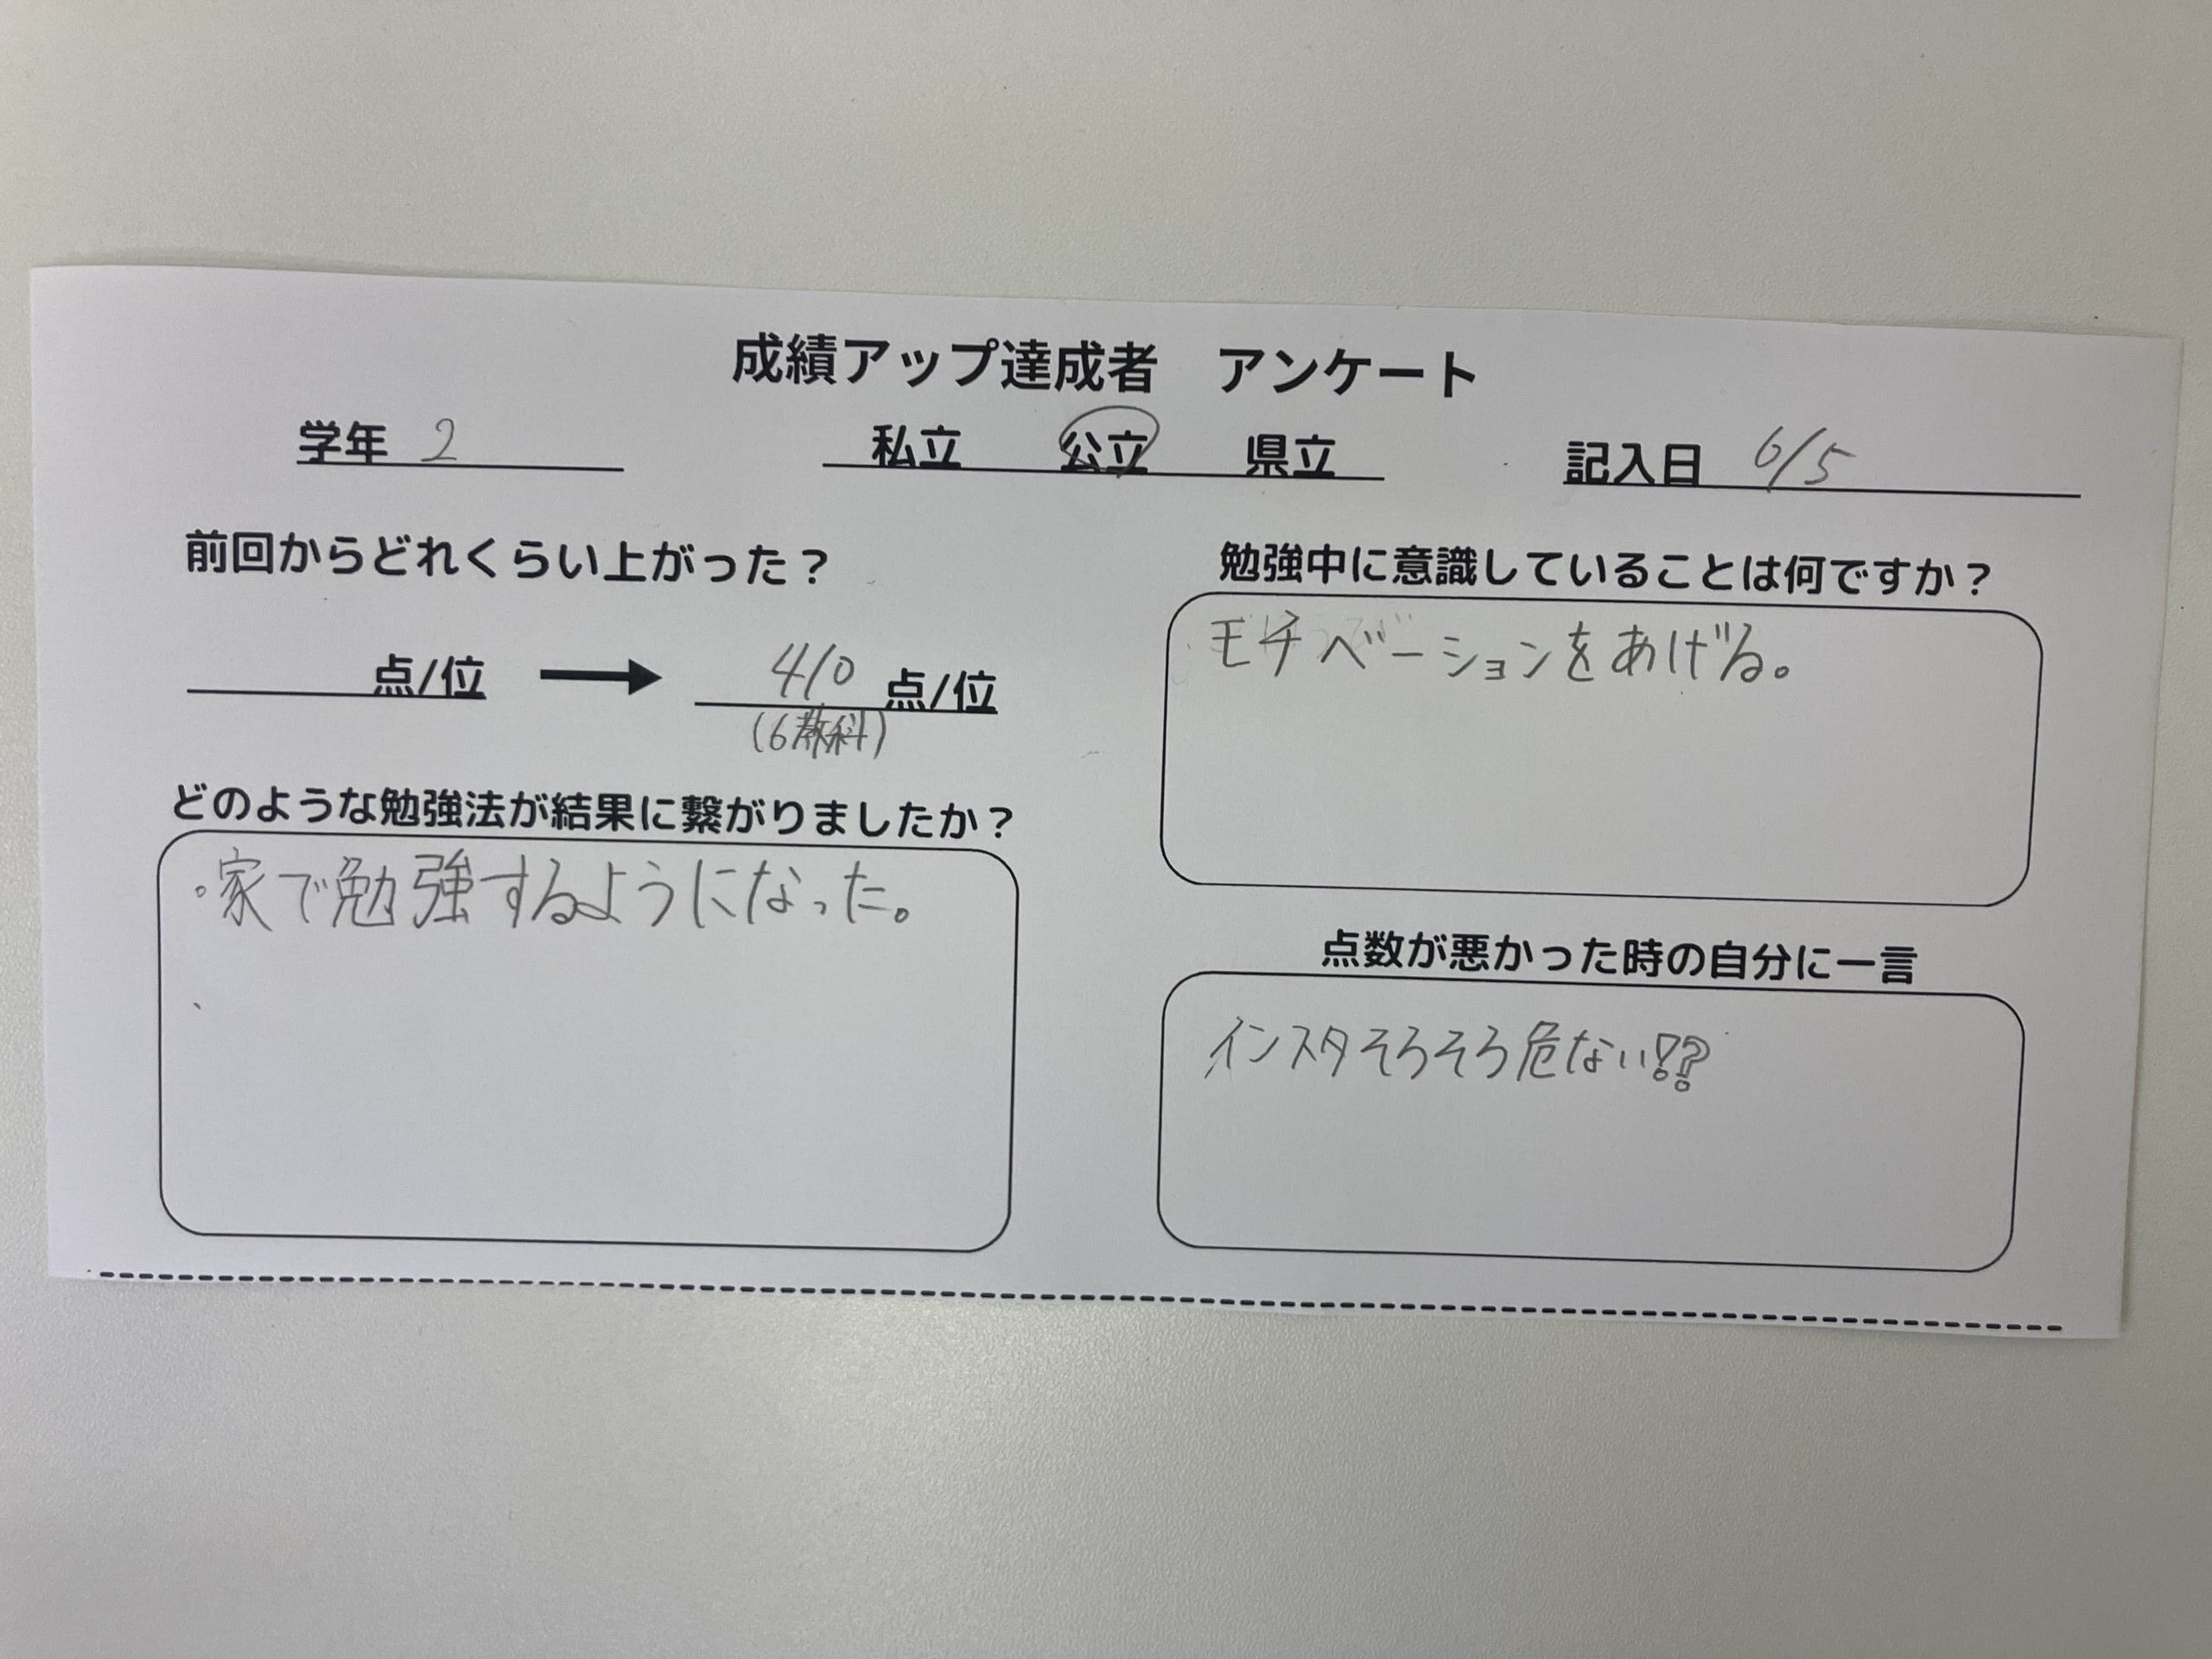 成績アップ達成者　アンケート
学年 2　私立　公立　県立　記入日 6/5
前回からどれくらい上がった？
点/位 → 410 点/位
(6教科)
どのような勉強法が結果に繋がりましたか？
・家で勉強するようになった。
勉強中に意識していることは何ですか？
モチベーションをあげる。
点数が悪かった時の自分に一言
インスタそろそろ危ない!?